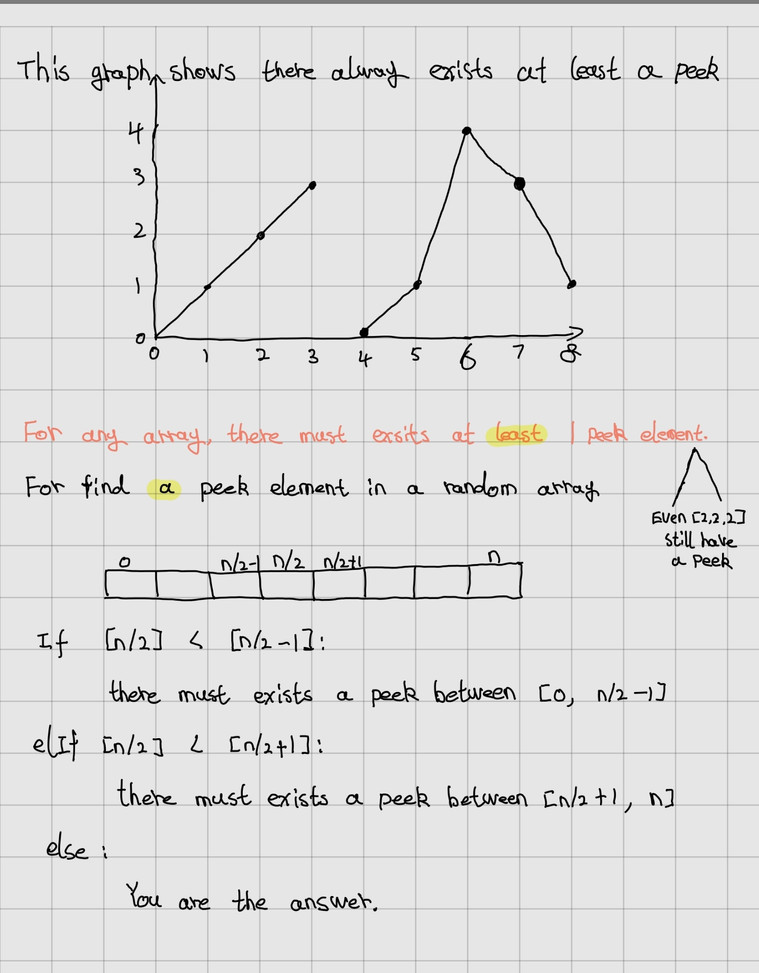 This graph shows there alway exists at least a peek
4
3
2
1
0
0 1 2 3 4 5 6 7 8
For any array, there must exsits at least 1 peek element.
For find a peek element in a random array
Even [2,2,2]
still have
a peek
0 n/2-1 n/2 n/2+1 n
If [n/2] < [n/2-1]:
there must exists a peek between [0, n/2-1]
elIf [n/2] < [n/2+1]:
there must exists a peek between [n/2+1, n]
else:
You are the answer.